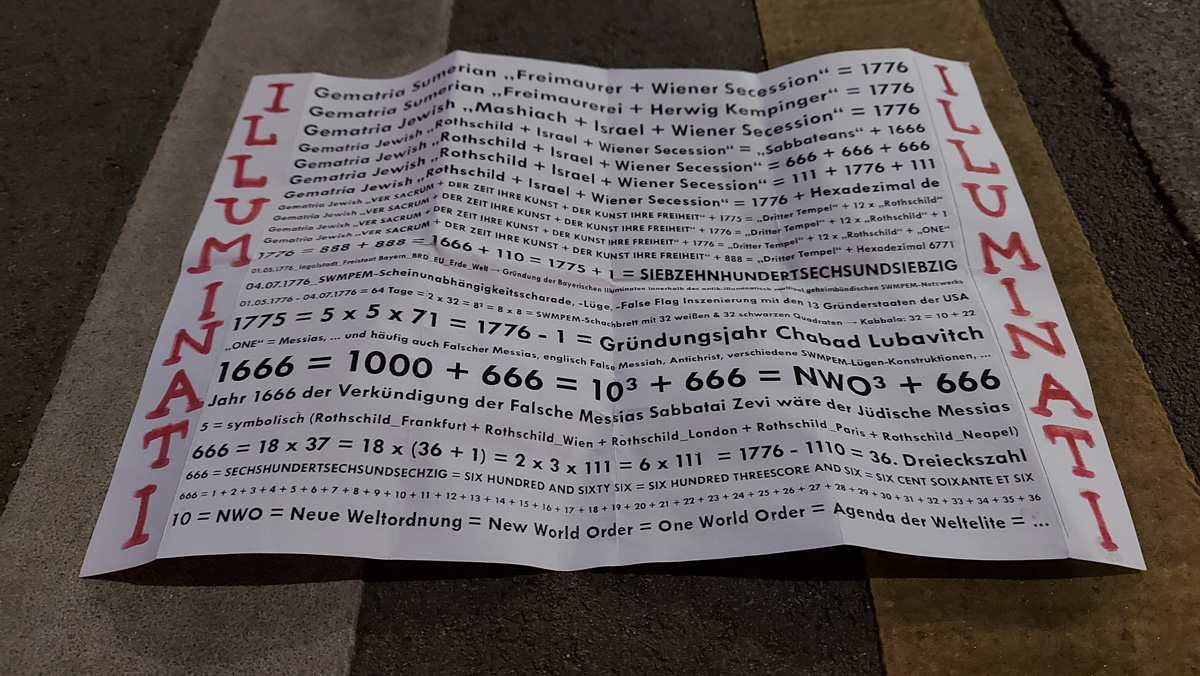 ILLUMINATI
Gematria Sumerian „Freimaurer + Wiener Secession“ = 1776
Gematria Sumerian „Freimaurerei + Herwig Kempinger“ = 1776
Gematria Jewish „Mashiach + Israel + Wiener Secession“ = 1776
Gematria Jewish „Rothschild + Israel + Wiener Secession“ = „Sabbateans“ + 1666
Gematria Jewish „Rothschild + Israel + Wiener Secession“ = 666 + 666 + 666
Gematria Jewish „Rothschild + Israel + Wiener Secession“ = 111 + 1776 + 111
Gematria Jewish „Rothschild + Israel + Wiener Secession“ = 1776 + Hexadezimal de
Gematria Jewish „VER SACRUM + DER ZEIT IHRE KUNST + DER KUNST IHRE FREIHEIT“ + 1775 = „Dritter Tempel“ + 12 x „Rothschild“
Gematria Jewish „VER SACRUM + DER ZEIT IHRE KUNST + DER KUNST IHRE FREIHEIT“ + 1776 = „Dritter Tempel“ + 12 x „Rothschild“ + 1
Gematria Jewish „VER SACRUM + DER ZEIT IHRE KUNST + DER KUNST IHRE FREIHEIT“ + 1776 = „Dritter Tempel“ + 12 x „Rothschild“ + „ONE“
Gematria Jewish „VER SACRUM + DER ZEIT IHRE KUNST + DER KUNST IHRE FREIHEIT“ + 888 = „Dritter Tempel“ + Hexadezimal 6771
1776 = 888 + 888 = 1666 + 110 = 1775 + 1 = SIEBZEHNHUNDERTSECHSUNDSIEBZIG
01.05.1776_Ingolstadt_Freistaat Bayern_BRD_EU_Erde_Welt → Gründung der Bayerischen Illuminaten innerhalb des geheimbündischen SWMPEM-Netzwerks
04.07.1776_SWMPEM-Scheinunabhängigkeitsscharade, -Lüge, -False Flag Inszenierung mit den 13 Gründerstaaten der USA
01.05.1776 - 04.07.1776 = 64 Tage = 2 x 32 = 8² = 8 x 8 = SWMPEM-Schachbrett mit 32 weißen & 32 schwarzen Quadraten → Kabbala: 32 = 10 + 22
1775 = 5 x 5 x 71 = 1776 - 1 = Gründungsjahr Chabad Lubavitch
„ONE“ = Messias, ... und häufig auch Falscher Messias, englisch False Messiah, Antichrist, verschiedene SWMPEM-Lügen-Konstruktionen, ...
1666 = 1000 + 666 = 10³ + 666 = NWO³ + 666
Jahr 1666 der Verkündigung der Falsche Messias Sabbatai Zevi wäre der Jüdische Messias
5 = symbolisch (Rothschild_Frankfurt + Rothschild_Wien + Rothschild_London + Rothschild_Paris + Rothschild_Neapel)
666 = 18 x 37 = 18 x (36 + 1) = 2 x 3 x 111 = 6 x 111 = 1776 - 1110 = 36. Dreieckszahl
666 = SECHSHUNDERTSECHSUNDSECHZIG = SIX HUNDRED AND SIXTY SIX = SIX HUNDRED THREESCORE AND SIX = SIX CENT SOIXANTE ET SIX
666 = 1 + 2 + 3 + 4 + 5 + 6 + 7 + 8 + 9 + 10 + 11 + 12 + 13 + 14 + 15 + 16 + 17 + 18 + 19 + 20 + 21 + 22 + 23 + 24 + 25 + 26 + 27 + 28 + 29 + 30 + 31 + 32 + 33 + 34 + 35 + 36
10 = NWO = Neue Weltordnung = New World Order = One World Order = Agenda der Weltelite = ...
ILLUMINATI